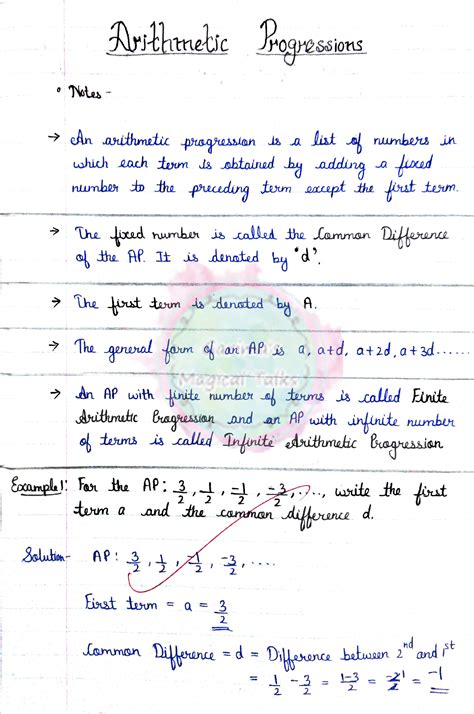 Arithmetic Progressions
• Notes -
→ An arithmetic progression is a list of numbers in
which each term is obtained by adding a fixed
number to the preceding term except the first term.
→ The fixed number is called the Common Difference
of the AP. It is denoted by 'd'.
→ The first term is denoted by A.
→ The general form of an AP is a, a+d, a+2d, a+3d......
→ An AP with finite number of terms is called Finite
Arithmetic Progression and an AP with infinite number
of terms is called Infinite Arithmetic Progression
Magical Talks
Example 1: For the AP: 3/2, 1/2, -1/2, -3/2, ...., write the first
term a and the common difference d.
Solution- AP: 3/2, 1/2, -1/2, -3/2, ....
First term = a = 3/2
Common Difference = d = Difference between 2nd and 1st
= 1/2 - 3/2 = 1-3/2 = -2/2 = -1